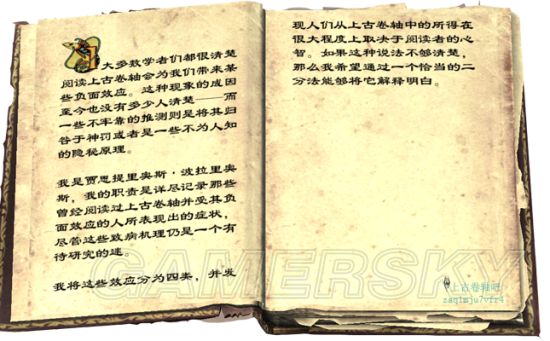 大多数学者们都很清楚
阅读上古卷轴会为我们带来某
些负面效应。这种现象的成因
至今也没有多少人清楚——而
一些不牢靠的推测则是将其归
咎于神罚或者是一些不为人知
的隐秘原理。
我是贾思提里奥斯·波拉里奥
斯，我的职责是详尽记录那些
曾经阅读过上古卷轴并受其负
面效应的人所表现出的症状，
尽管这些致病机理仍是一个有
待研究的迷。
我将这些效应分为四类，并发
现人们从上古卷轴中的所得在
很大程度上取决于阅读者的心
智。如果这种说法不够清楚，
那么我希望通过一个恰当的二
分法能够将它解释明白。
GAMERSKY
上古卷轴吧
zaq1mju7vfr4